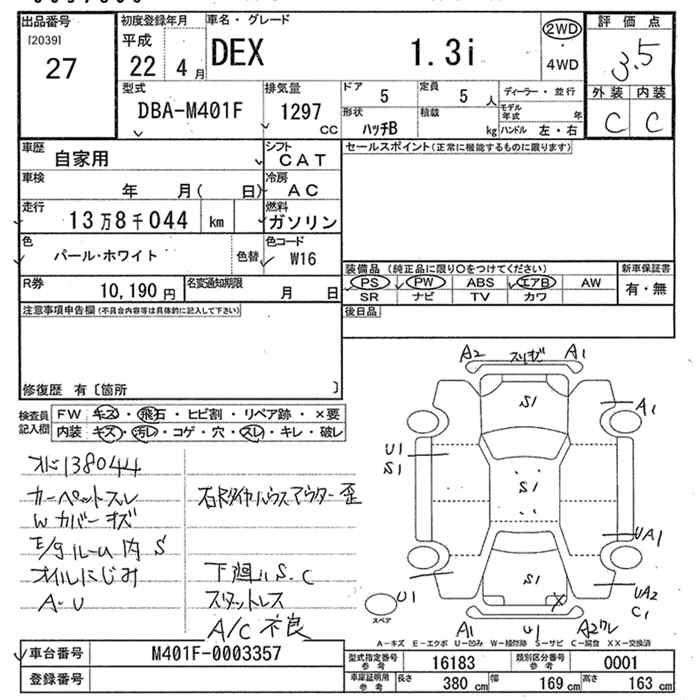 出品番号
[2039]
27
初度登録年月
平成
22 4 月
車名・グレード
DEX 1.3i
2WD
・
4WD
評価点
3.5
外装 内装
C C
型式
DBA-M401F
排気量
1297
cc
ドア
5
定員
5 人
ディーラー・並行
形状
ハッチB
積載
kg
モデル年式
年
ハンドル 左・右
車歴
自家用
シフト
CAT
セールスポイント(正常に機能するものに限ります)
車検
年 月( 日)
冷房
AC
走行
13万8千044 km
燃料
ガソリン
色
パール・ホワイト
色替
色コード
W16
装備品 (純正品に限り○をつけてください)
新車保証書
PS PW ABS エアB AW
SR ナビ TV カワ
有・無
R券
10,190 円
名変通知期限
月 日
後日品
注意事項申告欄(不具合内容等は具体的に記入して下さい)
修復歴 有〔箇所 〕
検査員
記入欄
FW キズ・飛石・ヒビ割・リペア跡・×要
内装 キズ・汚レ・コゲ・穴・スレ・キレ・破レ
138044
カーペットスレ
Wカバーキズ
E/gルーム内 S
オイルにじみ
A・U
右Rタイヤハウスアウター歪
下廻りS.C
スタットレス
A/C不良
A2 スリキズ A1
S1
A1
U1
S1
S1
UA1
U1
S1
X
UA2
C1
スペア
A1 U1 A2ワレ
A-キズ E-エクボ U-凹み W-補修跡 S-サビ C-腐食 XX-交換済
車台番号
M401F-0003357
登録番号
型式指定番号
参考
16183
類別区分番号
参考
0001
車庫証明用
参考
長さ
380 cm
幅
169 cm
高さ
163 cm